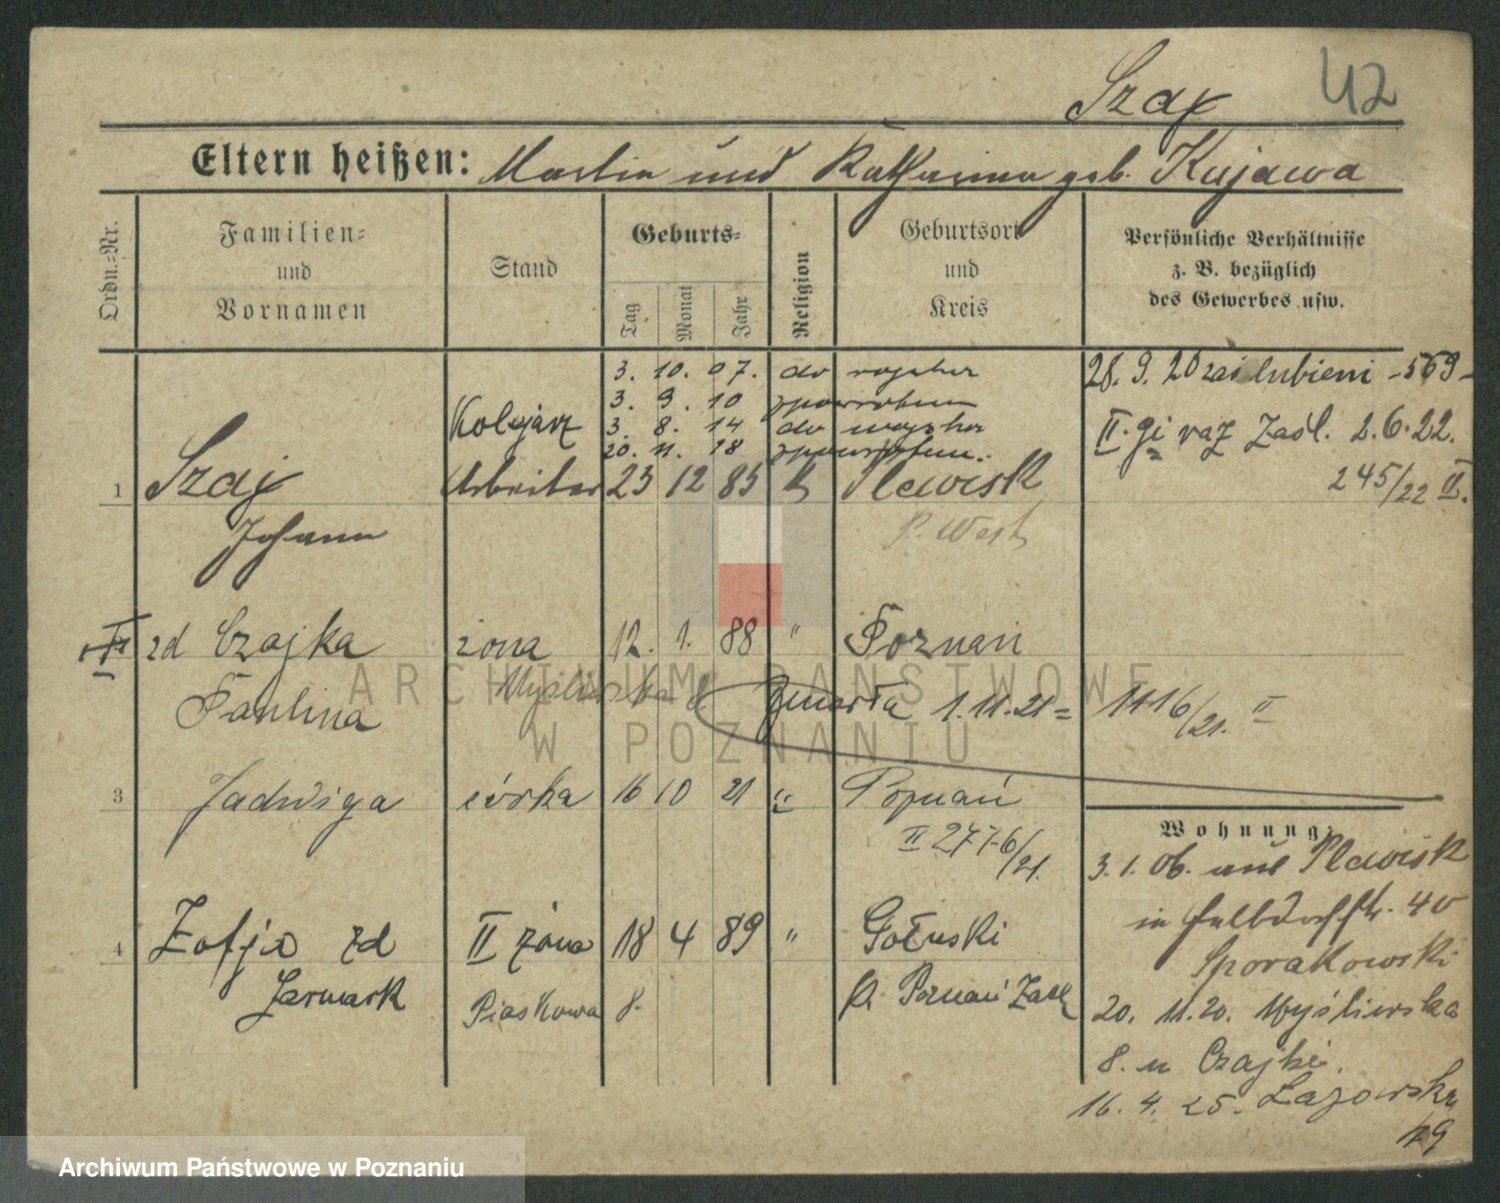 Szaj 42
Eltern heißen: Martin und Katharina geb. Kajawa
Ordn.-Nr.
Familien-
und
Vornamen
Stand
Geburts-
Tag
Monat
Jahr
Religion
Geburtsort
und
Kreis
Persönliche Verhältnisse
z. B. bezüglich
des Gewerbes usw.
3. 10. 07. do wojska
3. 9. 10 zpowrotem
3. 8. 14 do wojska
20. 11. 18 zpowrotem.
28. 9. 20 zaślubieni -569-
II. gi raz zaśl. 2.6.22.
245/22 II.
Kolejarz
1 Szaj Arbeiter 23 12 85 k Plewisk
Johann P. West
II zd Czajka żona 12. 1. 88 " Poznań
Paulina Myśliwska 8 Zmarła 1.11.21= 1116/21. II
3 Jadwiga córka 16 10 21 " Poznań
II 2776/21.
4 Zofja zd II żona 18 4 89 " Gołuski
Jarmark Piaskowa 8. p. Poznań Zach
Wohnung:
3. 1. 06. aus Plewisk
in 40
Sporakowski
20. 11. 20. Myśliwska
8. u Czajki.
16. 4. 25. Łazowska
19
ARCHIWUM PAŃSTWOWE
W POZNANIU
Archiwum Państwowe w Poznaniu